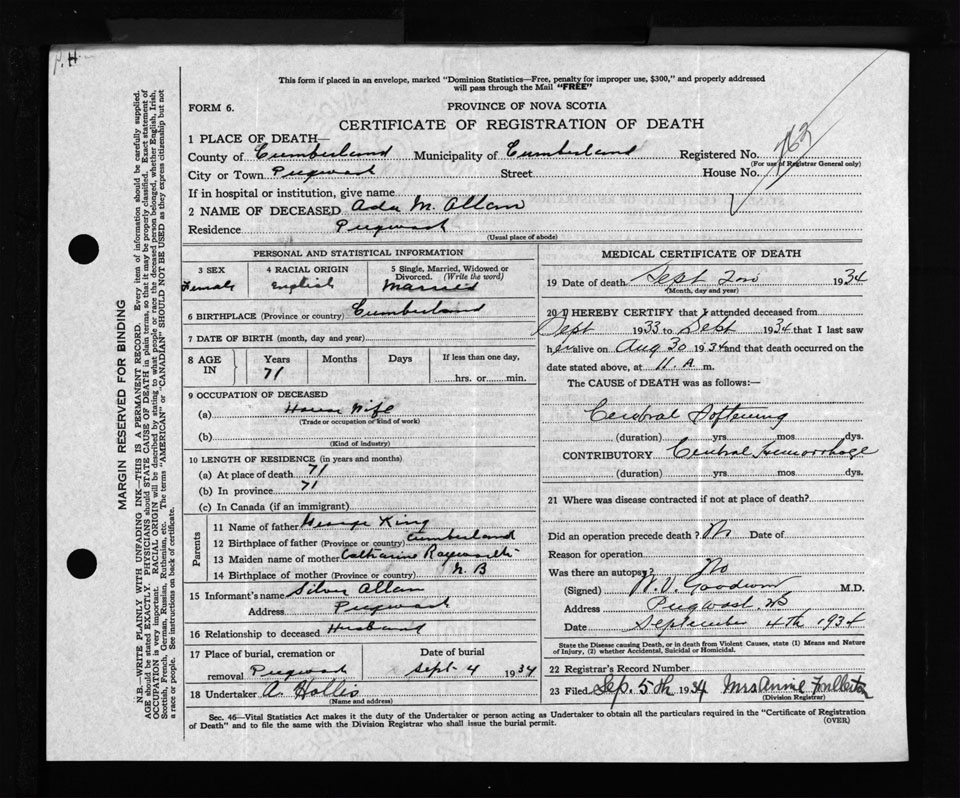 P.H.
This form if placed in an envelope, marked "Dominion Statistics—Free, penalty for improper use, $300," and properly addressed
will pass through the Mail "FREE"
FORM 6.
PROVINCE OF NOVA SCOTIA
CERTIFICATE OF REGISTRATION OF DEATH
1 PLACE OF DEATH—
County of Cumberland Municipality of Cumberland Registered No. 763
(For use of Registrar General only)
City or Town Pugwash Street House No.
If in hospital or institution, give name
2 NAME OF DECEASED Ada M. Allan
Residence Pugwash
(Usual place of abode)
PERSONAL AND STATISTICAL INFORMATION
3 SEX 4 RACIAL ORIGIN 5 Single, Married, Widowed or
Divorced. (Write the word)
Female English Married
6 BIRTHPLACE (Province or country) Cumberland
7 DATE OF BIRTH (month, day and year)
8 AGE IN Years Months Days If less than one day,
71 hrs. or min.
9 OCCUPATION OF DECEASED
(a) House Wife
(Trade or occupation or kind of work)
(b)
(Kind of industry)
10 LENGTH OF RESIDENCE (in years and months)
(a) At place of death 71
(b) In province 71
(c) In Canada (if an immigrant)
Parents
11 Name of father George King
12 Birthplace of father (Province or country) Cumberland
13 Maiden name of mother Catharine
14 Birthplace of mother (Province or country) N. B
15 Informant's name Silver Allan
Address Pugwash
16 Relationship to deceased Husband
17 Place of burial, cremation or Date of burial
removal Pugwash Sept. 4 1934
18 Undertaker A. Hollis
(Name and address)
MEDICAL CERTIFICATE OF DEATH
19 Date of death Sept 2nd 1934
(Month, day and year)
20 I HEREBY CERTIFY that I attended deceased from
Sept 1933 to Sept 1934 that I last saw
her alive on Aug 30 1934 and that death occurred on the
date stated above, at 11. A. m.
The CAUSE of DEATH was as follows:—
Cerebral Softening
(duration) yrs. mos. dys.
CONTRIBUTORY Cerebral Hemorrhage
(duration) yrs. mos. dys.
21 Where was disease contracted if not at place of death?
Did an operation precede death? Date of
Reason for operation
Was there an autopsy? No
(Signed) W. V. Goodwin M.D.
Address Pugwash NS
Date September 4th 1934
State the Disease causing Death, or in death from Violent Causes, state (1) Means and Nature
of Injury, (2) whether Accidental, Suicidal or Homicidal.
22 Registrar's Record Number
23 Filed Sep. 5th 1934 Mrs Annie Fullerton
(Division Registrar)
Sec. 46—Vital Statistics Act makes it the duty of the Undertaker or person acting as Undertaker to obtain all the particulars required in the "Certificate of Registration
of Death" and to file the same with the Division Registrar who shall issue the burial permit.
(OVER)
MARGIN RESERVED FOR BINDING
N.B.—WRITE PLAINLY WITH UNFADING INK—THIS IS A PERMANENT RECORD. Every item of information should be carefully supplied.
AGE should be stated EXACTLY. PHYSICIANS should STATE CAUSE OF DEATH in plain terms, so that it may be properly classified. Exact statement of
OCCUPATION is very important. RACIAL ORIGIN will be described by stating to what people or race the deceased person belonged, whether English, Irish,
Scottish, French, German, Russian, Ruthenian, etc. The terms "AMERICAN" or "CANADIAN" SHOULD NOT BE USED as they express citizenship but not
a race or people. See instructions on back of certificate.